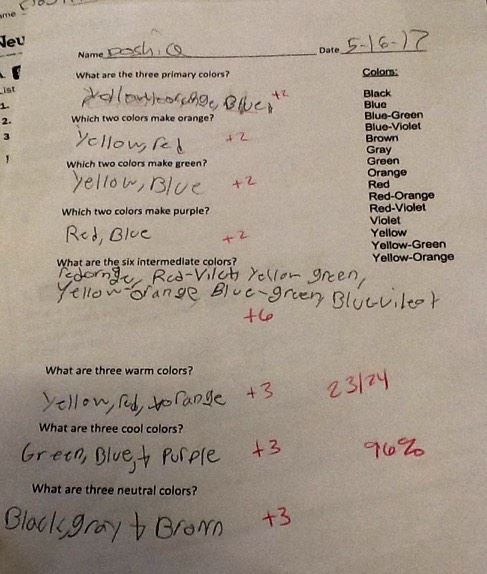 ame
Neu
List
1.
2.
3
Name Dosh, Q Date 5-16-17
What are the three primary colors?
Yellow, orange, Blue, +2
Which two colors make orange?
Yellow, red +2
Which two colors make green?
Yellow, Blue +2
Which two colors make purple?
Red, Blue +2
What are the six intermediate colors?
redornge, Red-Vilet, Yellow green,
Yellow-orange, Blue-green, Blue-vileot
+6
What are three warm colors?
Yellow, red, + orange +3 23/24
What are three cool colors?
Green, Blue, + Purple +3 96%
What are three neutral colors?
Black, gray + Brown +3
Colors:
Black
Blue
Blue-Green
Blue-Violet
Brown
Gray
Green
Orange
Red
Red-Orange
Red-Violet
Violet
Yellow
Yellow-Green
Yellow-Orange